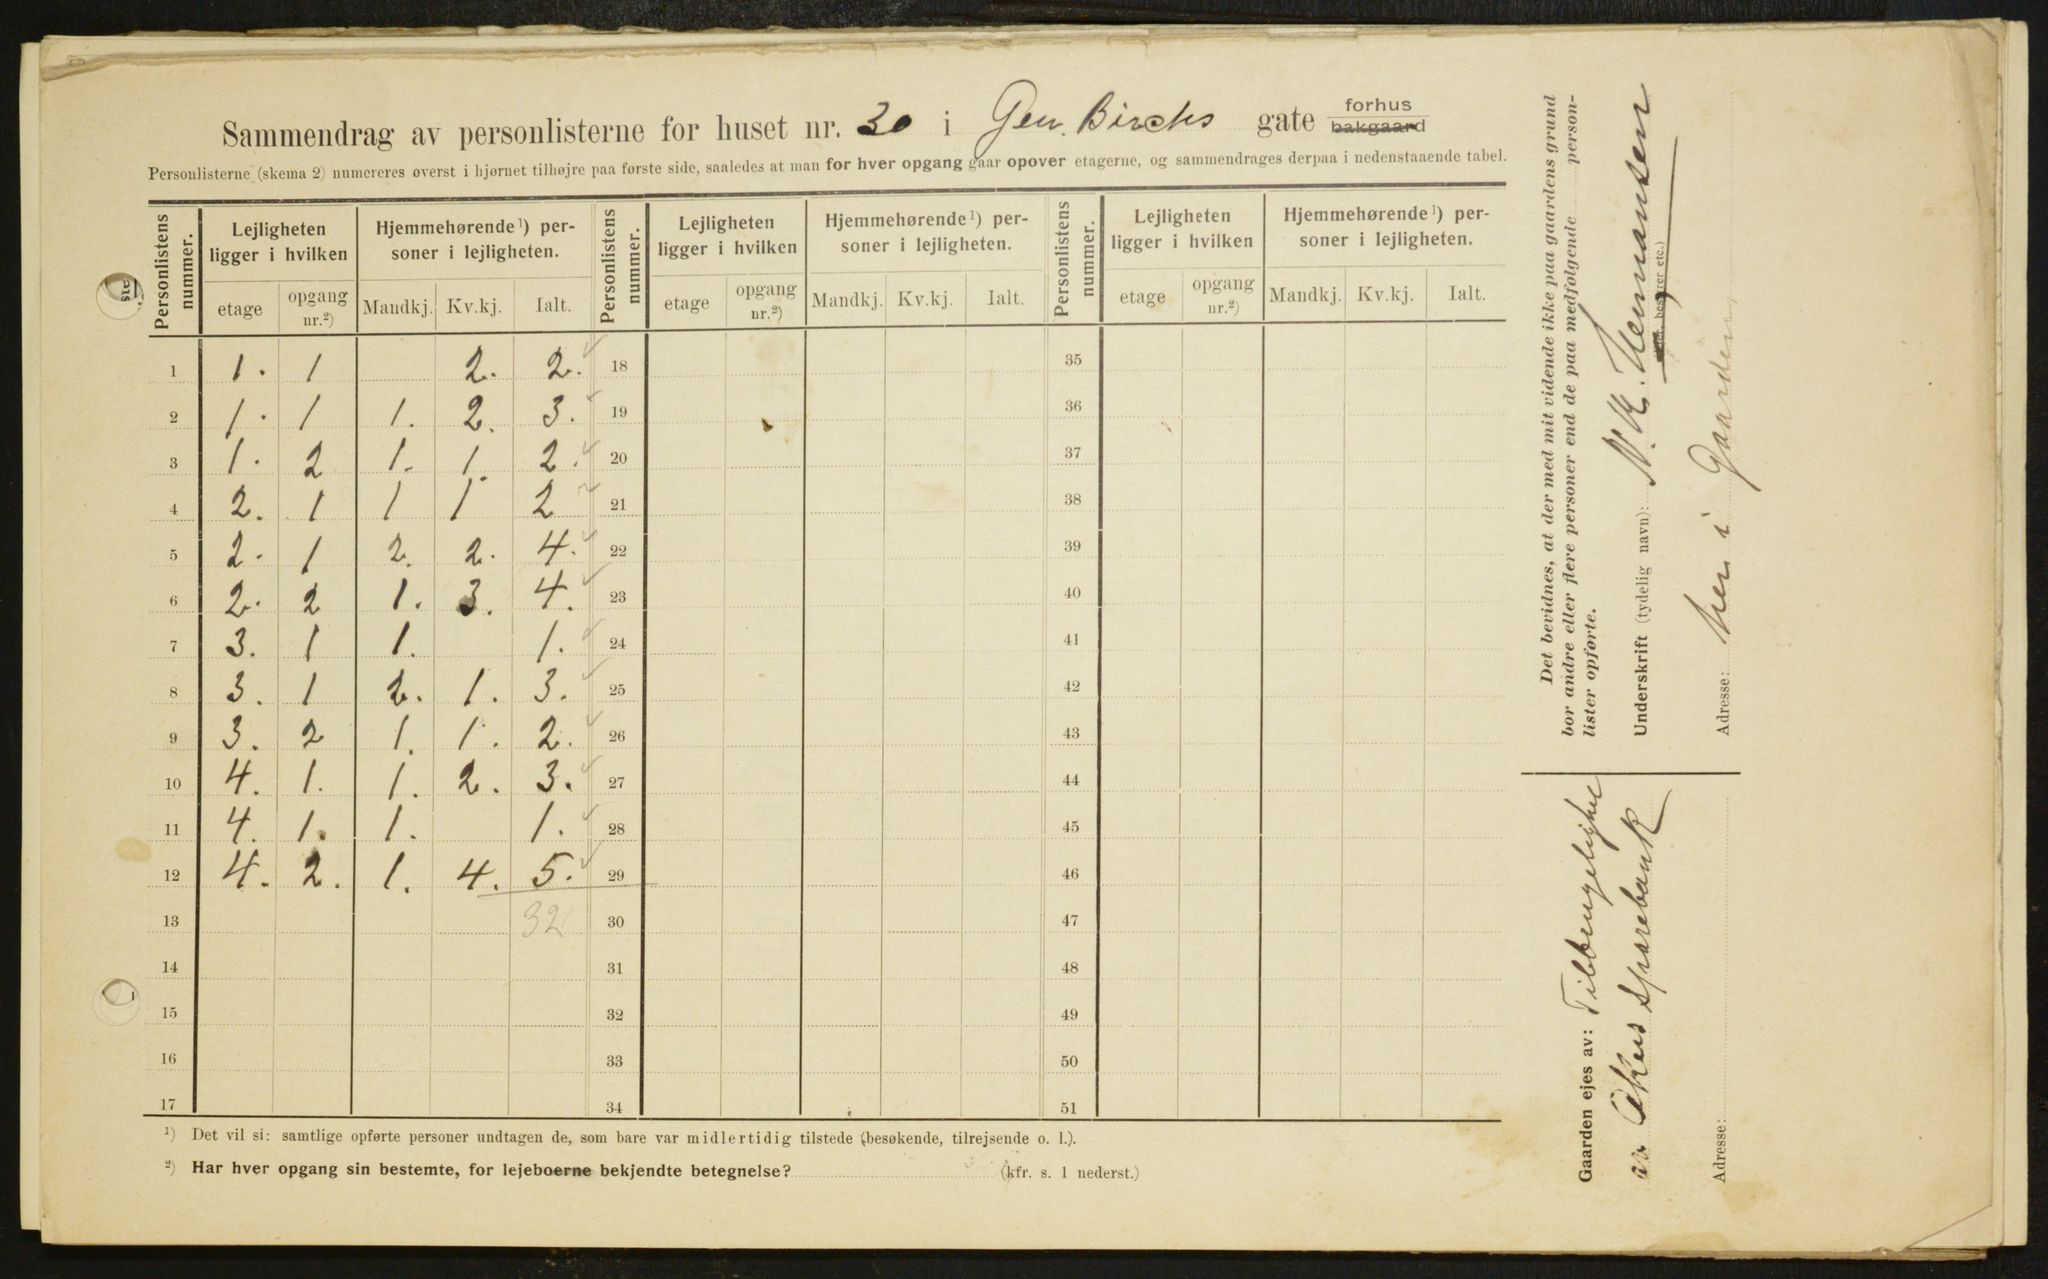 Sammendrag av personlisterne for huset nr. 30 i Gen. Birchs gate forhus bakgaard
Personlisterne (skema 2) numereres øverst i hjørnet tilhøjre paa første side, saaledes at man for hver opgang gaar opover etagerne, og sammendrages derpaa i nedenstaaende tabel.
Personlistens nummer. Lejligheten ligger i hvilken Hjemmehørende¹) personer i lejligheten. Personlistens nummer. Lejligheten ligger i hvilken Hjemmehørende¹) personer i lejligheten. Personlistens nummer. Lejligheten ligger i hvilken Hjemmehørende¹) personer i lejligheten.
etage opgang nr.²) Mandkj. Kv.kj. Ialt. etage opgang nr.²) Mandkj. Kv.kj. Ialt. etage opgang nr.²) Mandkj. Kv.kj. Ialt.
1 1. 1 2. 2. 18 35
2 1. 1 1. 2. 3. 19 36
3 1. 2 1. 1. 2. 20 37
4 2. 1 1 1 2 21 38
5 2. 1 2. 2. 4. 22 39
6 2. 2 1. 3. 4. 23 40
7 3. 1 1. 1. 24 41
8 3. 1 2. 1. 3. 25 42
9 3. 2 1. 1. 2. 26 43
10 4. 1. 1. 2. 3. 27 44
11 4. 1. 1. 1. 28 45
12 4. 2. 1. 4. 5. 29 46
13 32 30 47
14 31 48
15 32 49
16 33 50
17 34 51
¹) Det vil si: samtlige opførte personer undtagen de, som bare var midlertidig tilstede (besøkende, tilrejsende o. l.).
²) Har hver opgang sin bestemte, for lejeboerne bekjendte betegnelse? (kfr. s. 1 nederst.)
Det bevidnes, at der med mit vidende ikke paa gaardens grund
bor andre eller flere personer end de paa medfølgende person-
lister opførte.
Underskrift (tydelig navn): N. K. Hermansen
bestyrer etc.)
Adresse: her i Gaarden
Gaarden ejes av:
Akers Sparebank
Adresse: